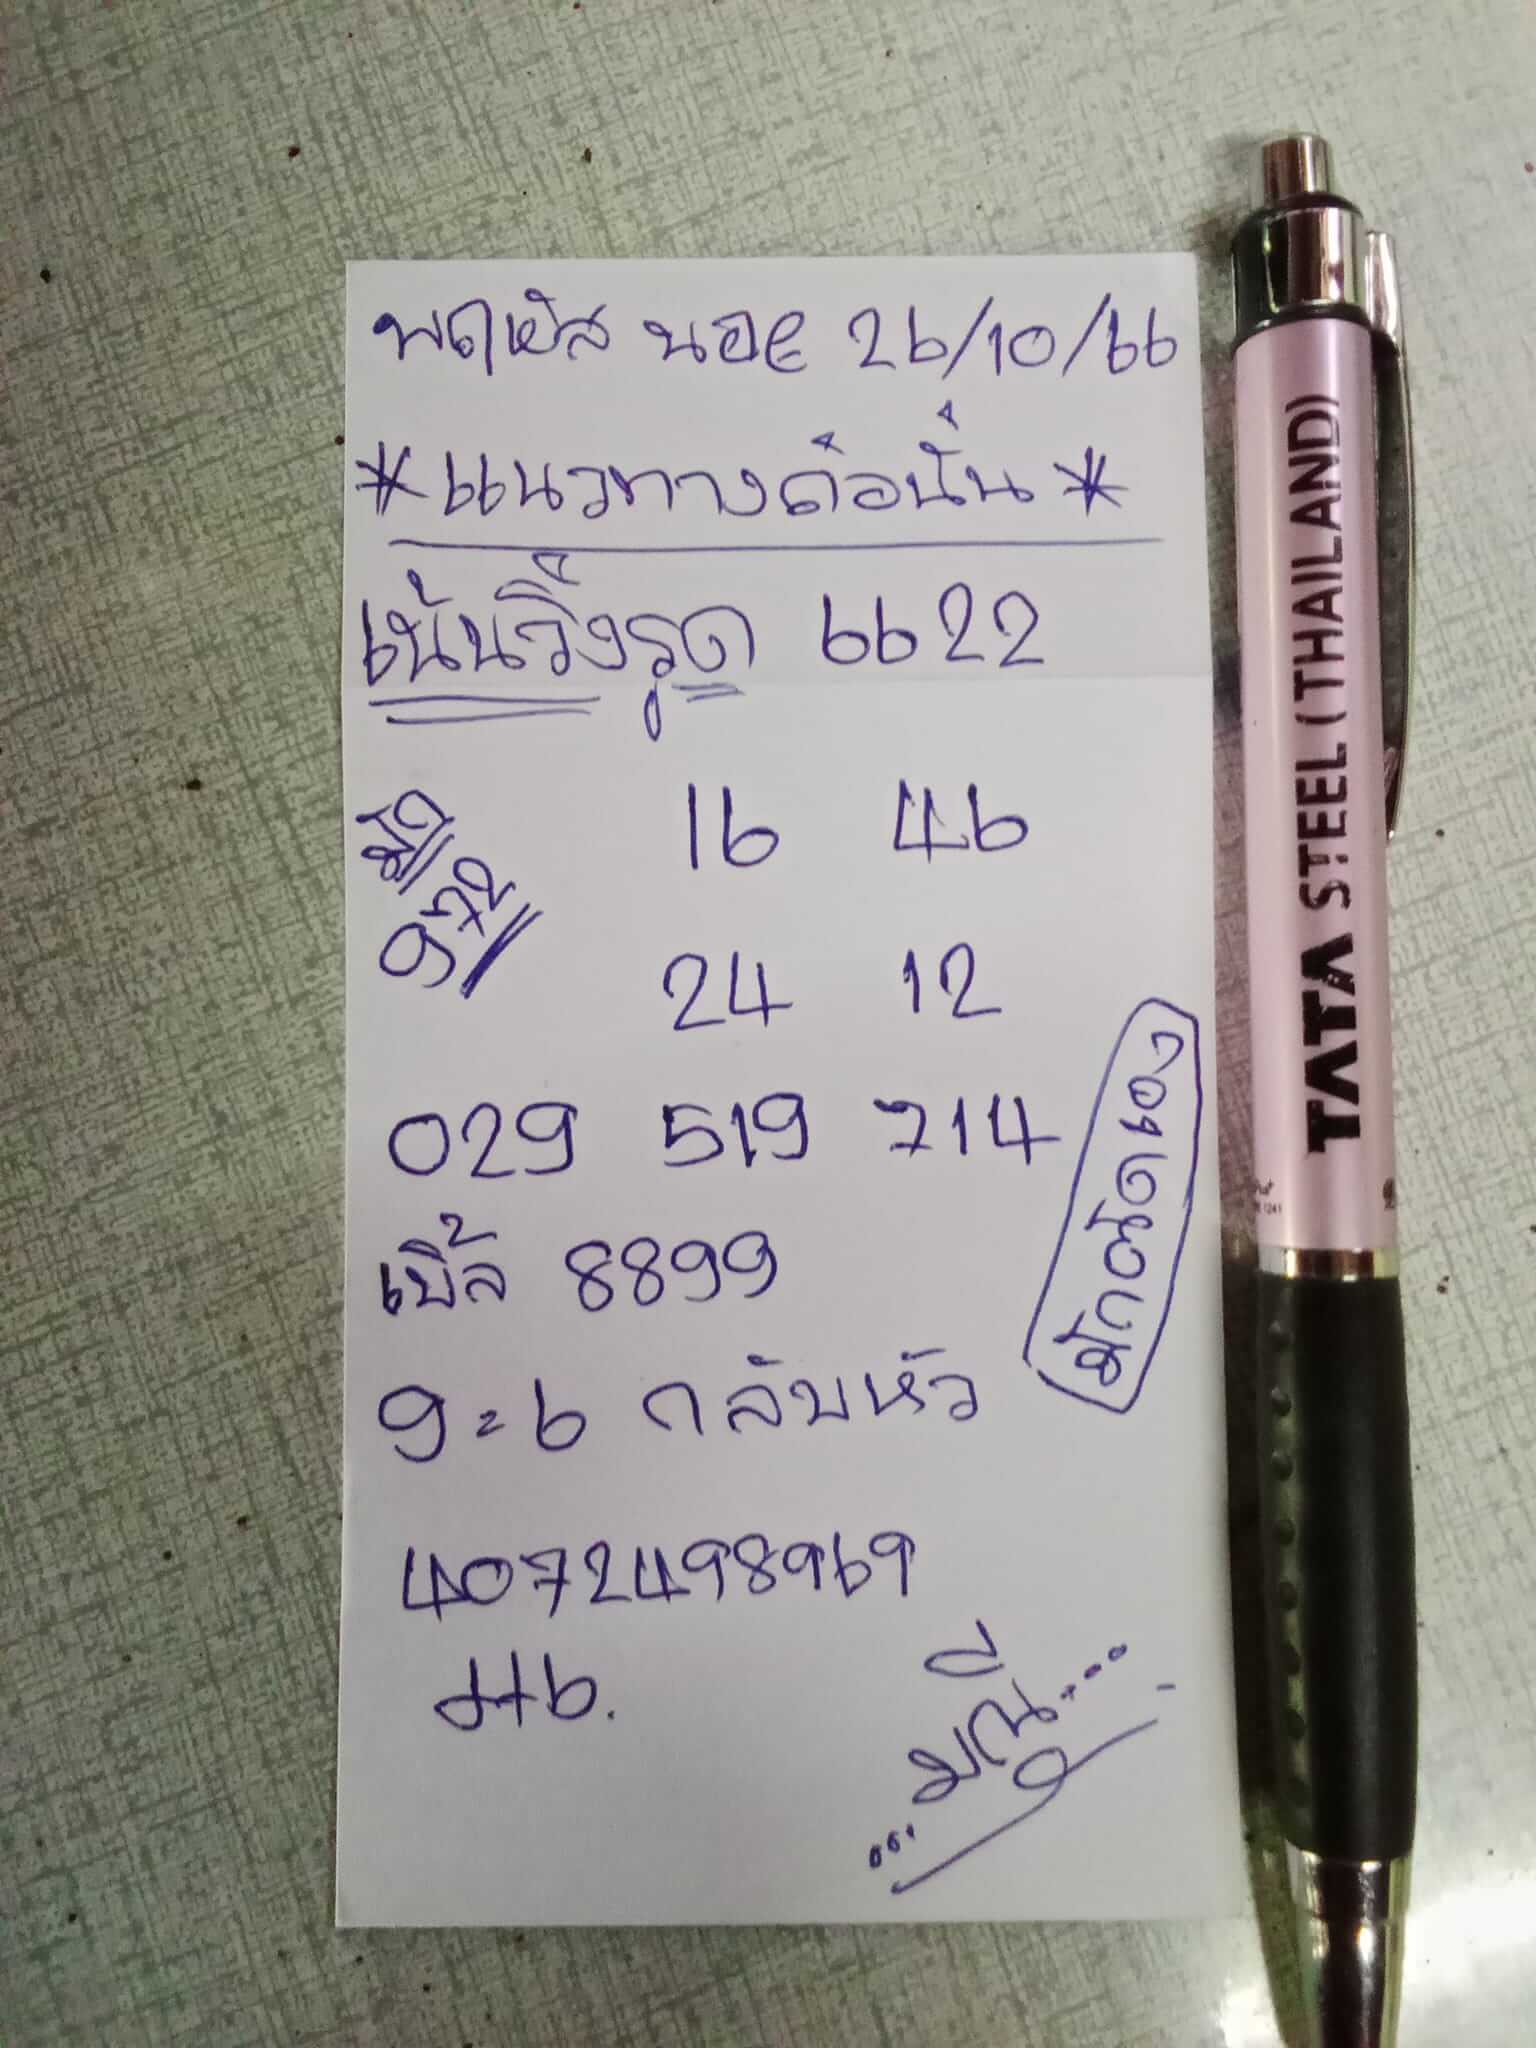 พฤหัส นอย 26/10/66
*แนวทางต่อนั่น*
เน้นวิ่งรูด 6622
16 46
24 12
029 519 714
เบิ้ล 8899
9=6 กลับหัว
ปักตัดเอง
4072498969
มณี
TATA STEEL (THAILAND)